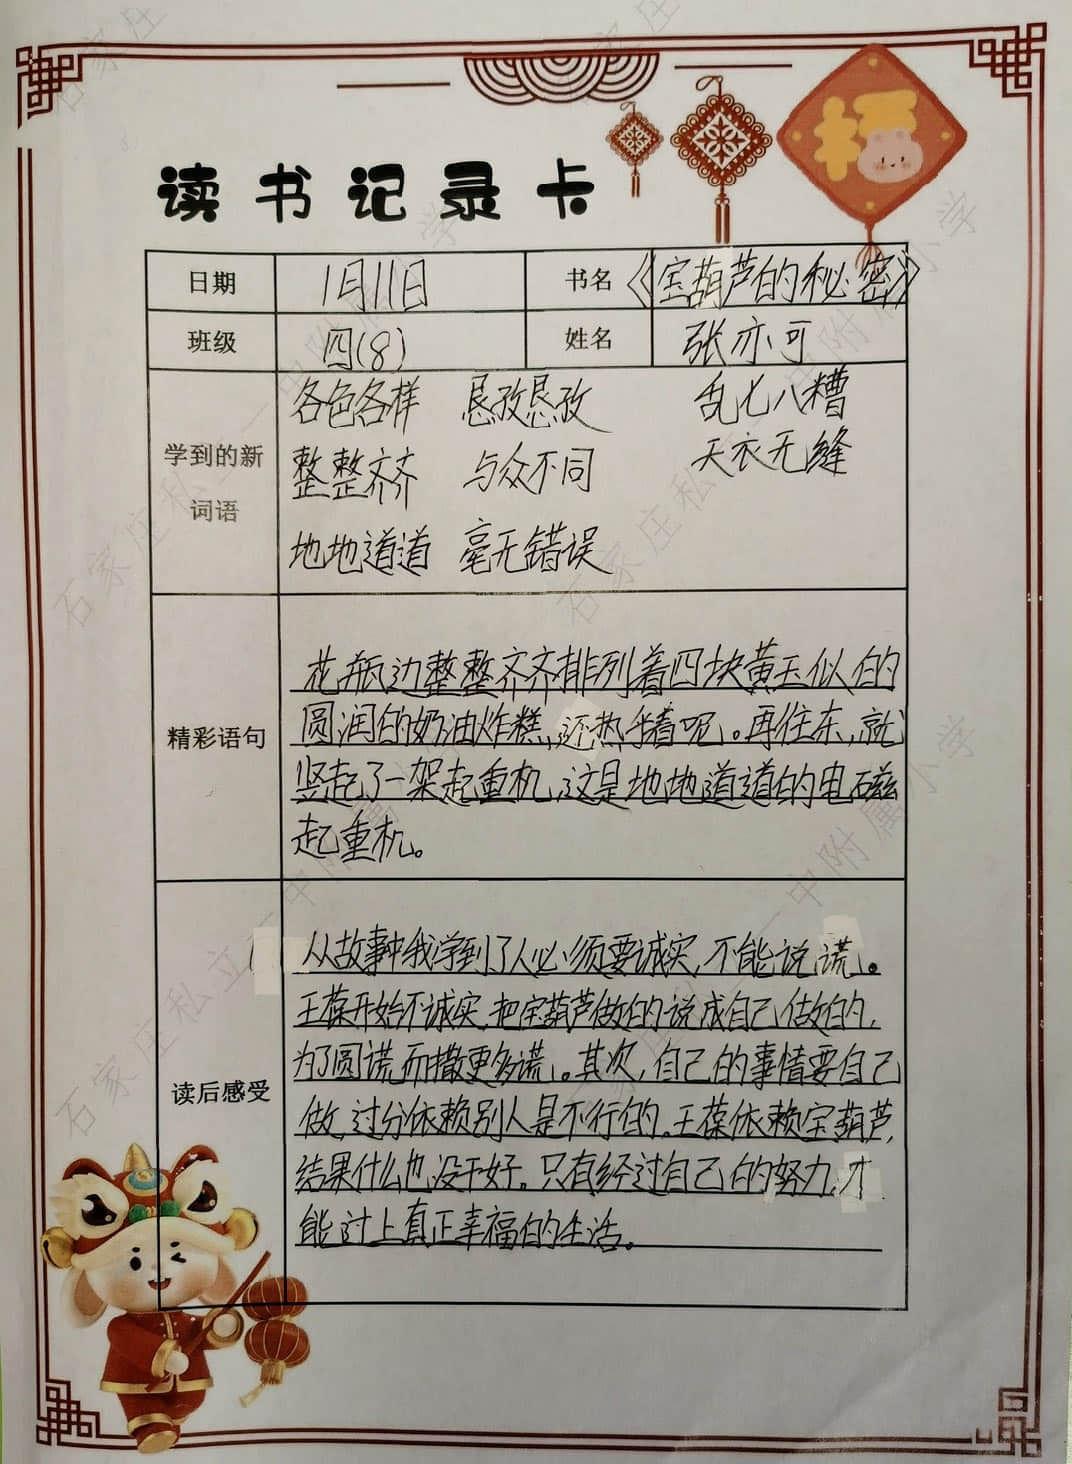 读书记录卡
日期 1月11日 书名 《宝葫芦的秘密》
班级 四(8) 姓名 张亦可
学到的新词语
各色各样 恳孜恳孜 乱七八糟
整整齐齐 与众不同 天衣无缝
地地道道 毫无错误
精彩语句
花瓶边整整齐齐排列着四块黄玉似的
圆润的奶油炸糕,还热手着呢。再往东,就
竖起了一架起重机,这是地地道道的电磁
起重机。
读后感受
从故事中我学到了人必须要诚实,不能说谎。
王葆开始不诚实,把宝葫芦做的说成自己做的,
为了圆谎而撒更多谎。其次,自己的事情要自己
做,过分依赖别人是不行的。王葆依赖宝葫芦,
结果什么也没干好。只有经过自己的努力,才
能过上真正幸福的生活。
福
石家庄私立一中附属小学